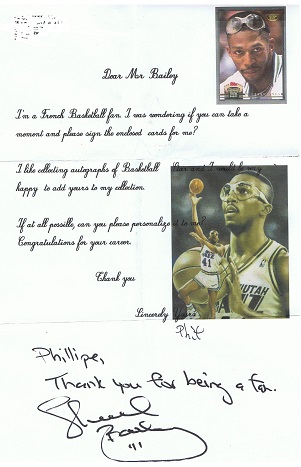 Dear Mr Bailey
I'm a French Basketball fan. I was wondering if you can take a
moment and please sign the enclosed cards for me?
I like collecting autographs of Basketball
happy to add yours to my collection.
If at all possible, can you please personalize it to me?
Congratulations for your career.
Thank you
Sincerely Yours
41
UTAH
Phillipe,
Thank you for being a fan.
Thurl
Bailey
41